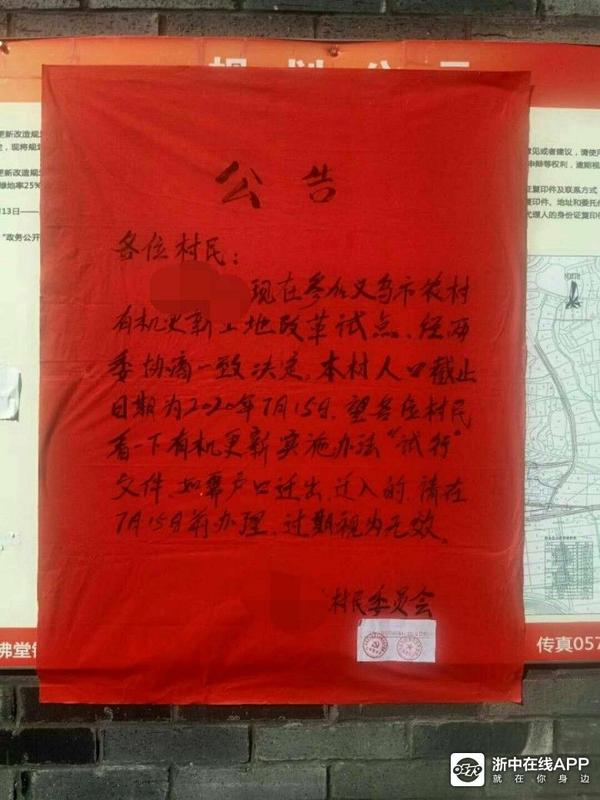 规划公示
更新改造规
现将规划
更新改造规
绿地率25%
月13日——
"政务公开
公告
各位村民：
现在参加义乌市农村
有机更新土地改革试点、经两
委协商一致决定，本村人口截止
日期为2020年7月15日，望各位村民
看一下有机更新实施办法"试行"
文件，如需户口迁出、迁入的，请在
7月15日前办理，过期视为无效。
村民委员会
意见或者建议，请使用
申辩等权利，逾期视
证复印件及联系方式
复印件、地址和委托
代理人的身份证复印件
佛堂
传真057
浙中在线APP
就在你身边